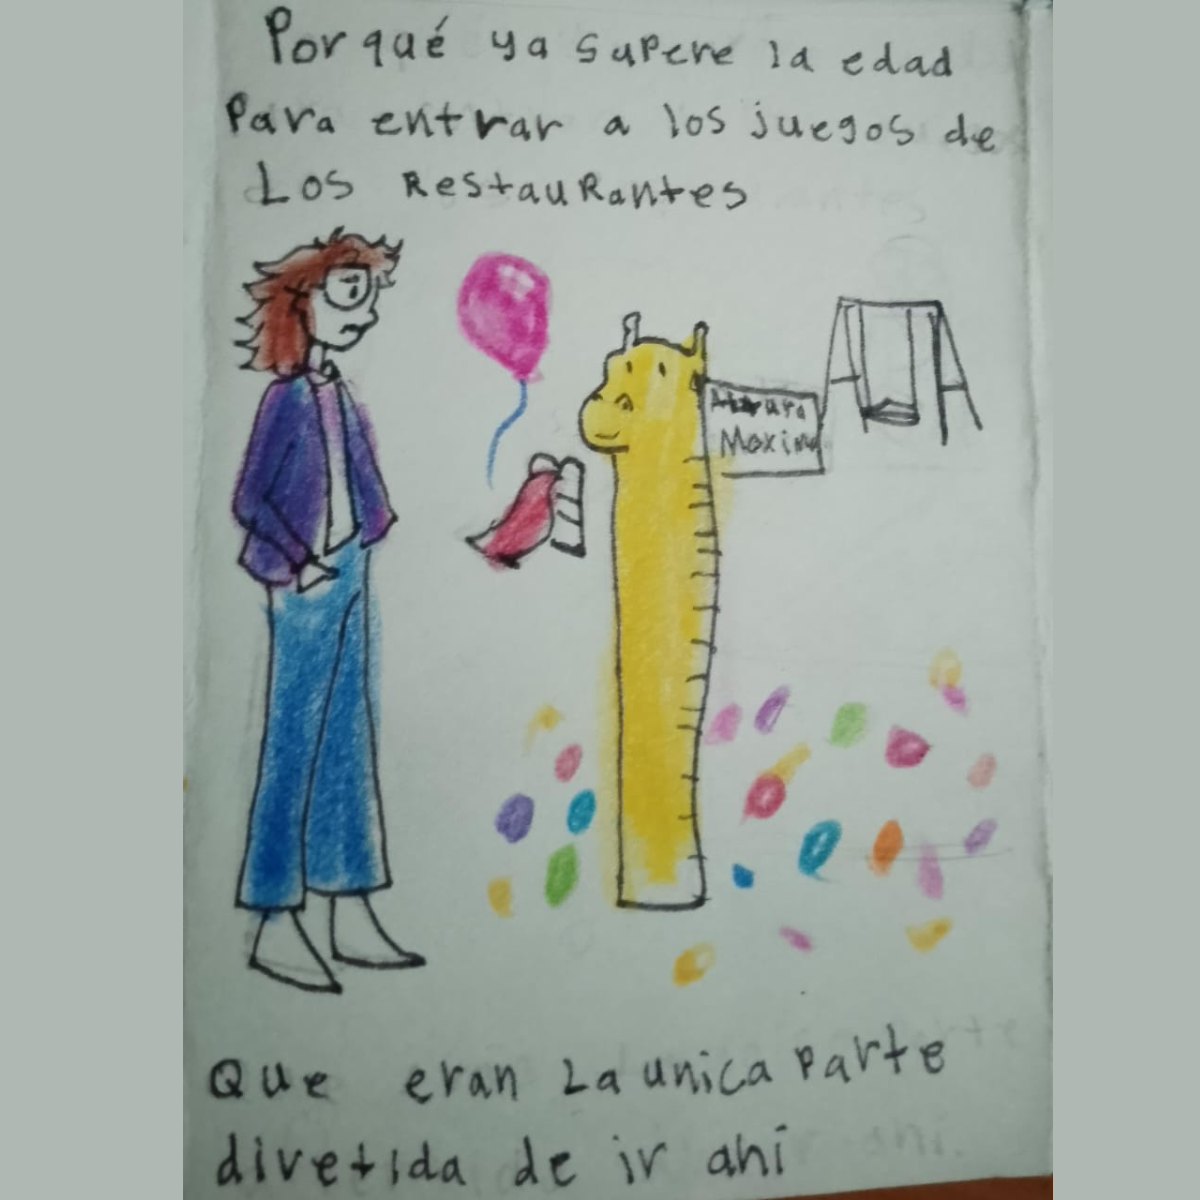 Por qué ya supere la edad
Para entrar a los juegos de
Los Restaurantes
Maxima
Que eran La unica parte
divetida de ir ahí